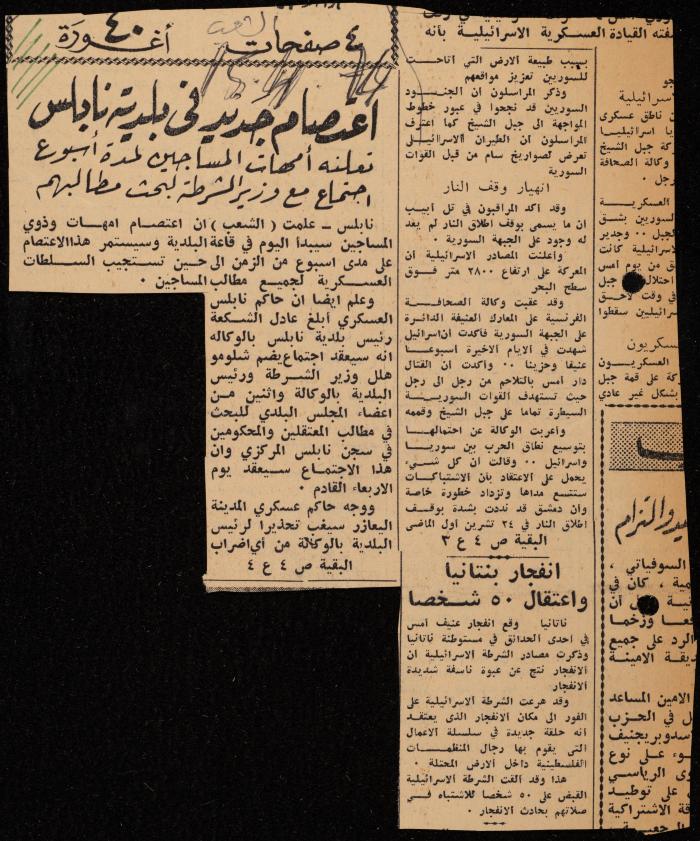 ٤ صفحات
٤٠ أغورة
اعتصام جديد في بلدية نابلس
تعلنه أمهات المساجين لمدة أسبوع
اجتماع مع وزير الشرطة لبحث مطالبهم
نابلس ــ علمت ( الشعب ) ان اعتصام امهات وذوي
المساجين سيبدأ اليوم في قاعة البلدية وسيستمر هذا الاعتصام
على مدى اسبوع من الزمن الى حين تستجيب السلطات
العسكرية لجميع مطالب المساجين ٠
وعلم ايضا ان حاكم نابلس
العسكري أبلغ عادل الشكعة
رئيس بلدية نابلس بالوكاله
انه سيعقد اجتماع يضم شلومو
هلل وزير الشرطة ورئيس
البلدية بالوكالة واثنين من
اعضاء المجلس البلدي للبحث
في مطالب المعتقلين والمحكومين
في سجن نابلس المركزي وان
هذا الاجتماع سيعقد يوم
الاربعاء القادم ٠
ووجه حاكم عسكري المدينة
اليعازر سيغب تحذيرا لرئيس
البلدية بالوكالة من أي اضراب
البقية ص ٤ ع ٤
فته القيادة العسكرية الاسرائيلية بأنه
بسبب طبيعة الارض التي اتاحت
للسوريين تعزيز مواقعهم
وذكر المراسلون ان الجنود
السوريين قد نجحوا في عبور خطوط
المواجهة الى جبل الشيخ كما اعترف
المراسلون ان الطيران الاسرائيلي
تعرض لصواريخ سام من قبل القوات
السورية
انهيار وقف النار
وقد اكد المراقبون في تل ابيب
ان ما يسمى بوقف اطلاق النار لم يعد
له وجود على الجبهة السورية ٠
وأعلنت المصادر الاسرائيلية أن
المعركة على ارتفاع ٢٨٠٠ متر فوق
سطح البحر
وقد عقبت وكالة الصحافة
الفرنسية على المعارك العنيفة الدائرة
على الجبهة السورية فأكدت ان اسرائيل
شهدت في الايام الاخيرة اسبوعا
عنيفا وحزينا ٠٠ وأكدت ان القتال
دار أمس بالتلاحم من رجل الى رجل
حيث تستهدف القوات السورية
السيطرة تماما على جبل الشيخ وقممه
وأعربت الوكالة عن احتمالها
بتوسيع نطاق الحرب بين سوريا
واسرائيل ٠٠ وقالت ان كل شيء
يحمل على الاعتقاد بأن الاشتباكات
ستتسع مداها وتزداد خطورة خاصة
وان دمشق قد نددت بشدة بوقف
اطلاق النار في ٢٤ تشرين اول الماضي
البقية ص ٤ ع ٣
انفجار بنتانيا
واعتقال ٥٠ شخصا
ناتانيا وقع انفجار عنيف أمس
في احدى الحدائق في مستوطنة ناتانيا
وذكرت مصادر الشرطة الاسرائيلية ان
الانفجار نتج عن عبوة ناسفة شديدة
الانفجار
وقد هرعت الشرطة الاسرائيلية على
الفور الى مكان الانفجار الذي يعتقد
انه حلقة جديدة في سلسلة الاعمال
التي يقوم بها رجال المنظمات
الفلسطينية داخل الارض المحتلة ٠
هذا وقد ألقت الشرطة الاسرائيلية
القبض على ٥٠ شخصا للاشتباه في
صلاتهم بحادث الانفجار ٠
اسرائيلية
ناطق عسكري
يا اسرائيليا
كة جبل الشيخ
وكالة الصحافة
رجل ٠
العسكرية
السوريين بشق
الجبل ٠٠ وجدير
اسرائيلية كانت
من يوم أمس
احتلال جبل
في وقت لاحق
سرائيليين سقطوا
سكريون
العسكريون
كة على قمة جبل
بشكل غير عادي
يد والتزام
السوفياتي ،
مية ، كان في
أن
عا وزخما
الرد على جميع
يقة الامينة
الامين المساعد
ل في الحزب
سدو بريجنيف
وء على نوع
ى الرياسي
على توطيد
قة الاشتراكية